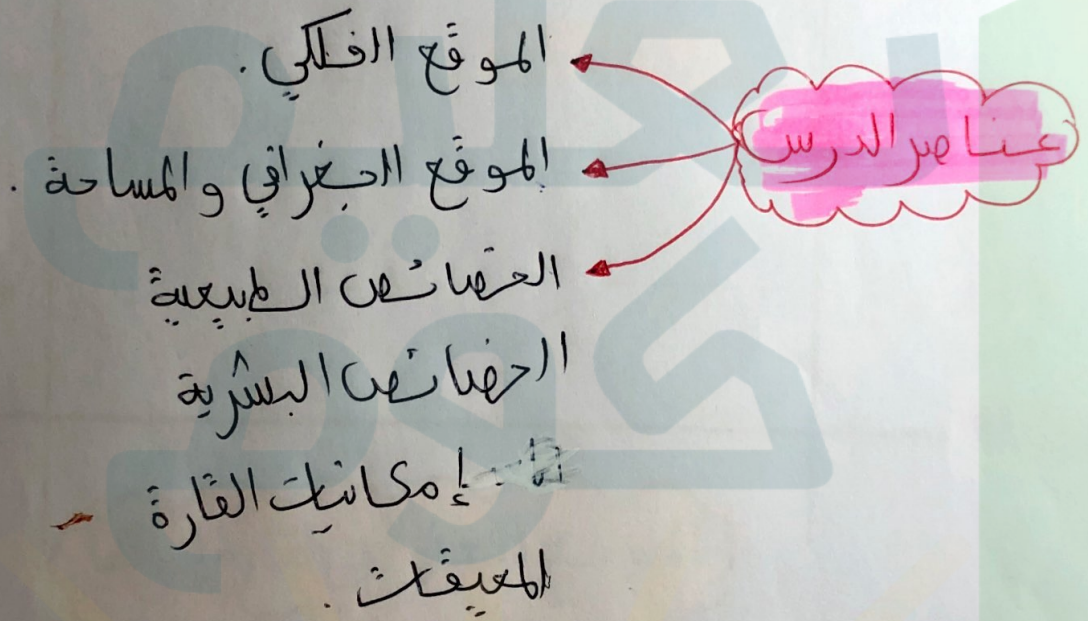 عناصر الدرس
الموقع الفلكي .
الموقع الجغرافي و المساحة .
الخصائص الطبيعية
الخصائص البشرية
إمكانيات القارة -
المعيقات .
تعليم
كوم